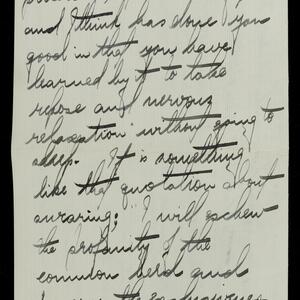 and I think has done you
good in that you have
learned by it to take
repose and nervous
relaxation without going to
sleep. It is something
like that quotation about
swearing; "I will eschew
the profanity of the
common herd and